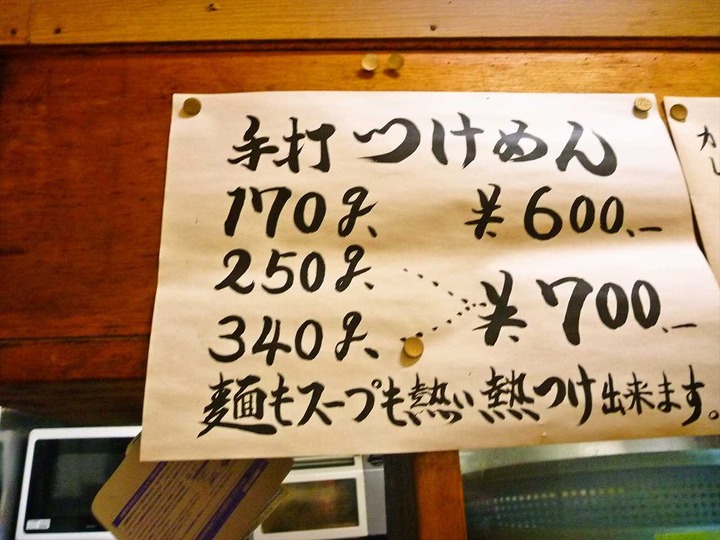 手打つけめん
170g、 ¥600、–
250g、
340g、 ¥700、–
麺もスープも熱い熱つけ出来ます。
か
し